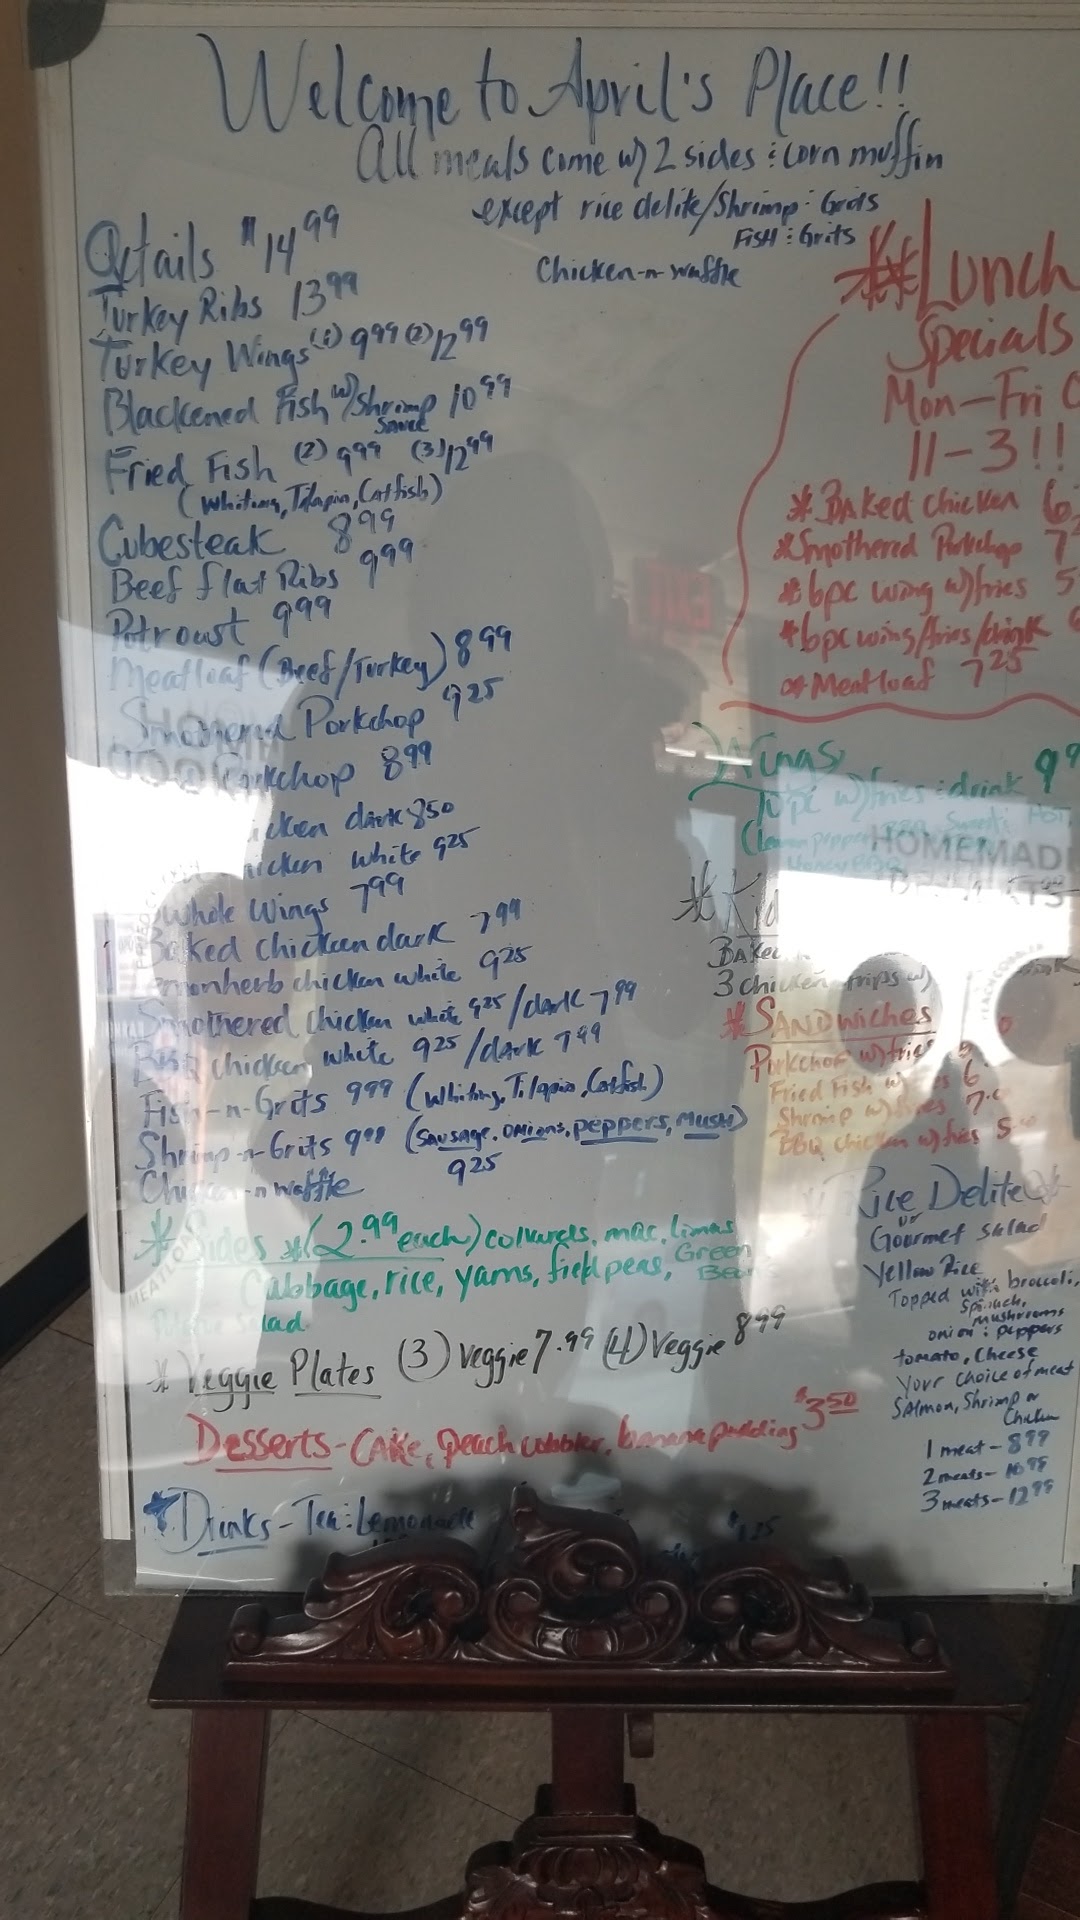 Welcome to April's Place!!
All meals come w/ 2 sides & corn muffin
except rice delite/Shrimp & Grits
Fish & Grits
Chicken-n-waffle
Oxtails $14.99
Turkey Ribs 13.99
Turkey Wings (1) 9.99 (2) 12.99
Blackened Fish w/Shrimp sauce 10.99
Fried Fish (2) 9.99 (3) 12.99
(Whiting, Tilapia, Catfish)
Cubesteak 8.99
Beef flat Ribs 9.99
Potroast 9.99
Meatloaf (Beef/Turkey) 8.99
Smothered Porkchop 9.25
Porkchop 8.99
chicken dark 8.50
chicken white 9.25
whole Wings 7.99
Baked chicken dark 7.99
Lemonherb chicken white 9.25
Smothered chicken white 9.25/dark 7.99
BBQ chicken white 9.25/dark 7.99
Fish-n-Grits 9.99 (Whiting, Tilapia, Catfish)
Shrimp-n-Grits 9.99 (Sausage, onions, peppers, Mush)
Chicken-n-waffle 9.25
*Sides *(2.99 each) collards, mac, limas
Cabbage, rice, yams, field peas, Green Bean
Salad
* Veggie Plates (3) Veggie 7.99 (4) Veggie 8.99
Desserts - Cake, peach cobbler, banana pudding $3.50
*Drinks - Tea & Lemonade
**Lunch
Specials
Mon-Fri
11-3!!
*Baked chicken 6
*Smothered Porkchop 7
*6pc wing w/fries 5
*6pc wing/fries/drink
*Meatloaf 7.25
Wings
10pc w/fries & drink 9
*Kid
Baked
3 chicken strips w/
*Sandwiches
Porkchop w/fries
Fried Fish w/fries 6
Shrimp w/fries 7.00
BBQ chicken w/fries 5
Rice Delite
or
Gourmet Salad
Yellow Rice
Topped with broccoli,
Spinach,
mushrooms
onion & peppers
tomato, cheese
Your choice of meat
Salmon, Shrimp or
Chicken
1 meat - 8.99
2 meats - 10.99
3 meats - 12.99
EXIT
HOMEMADE